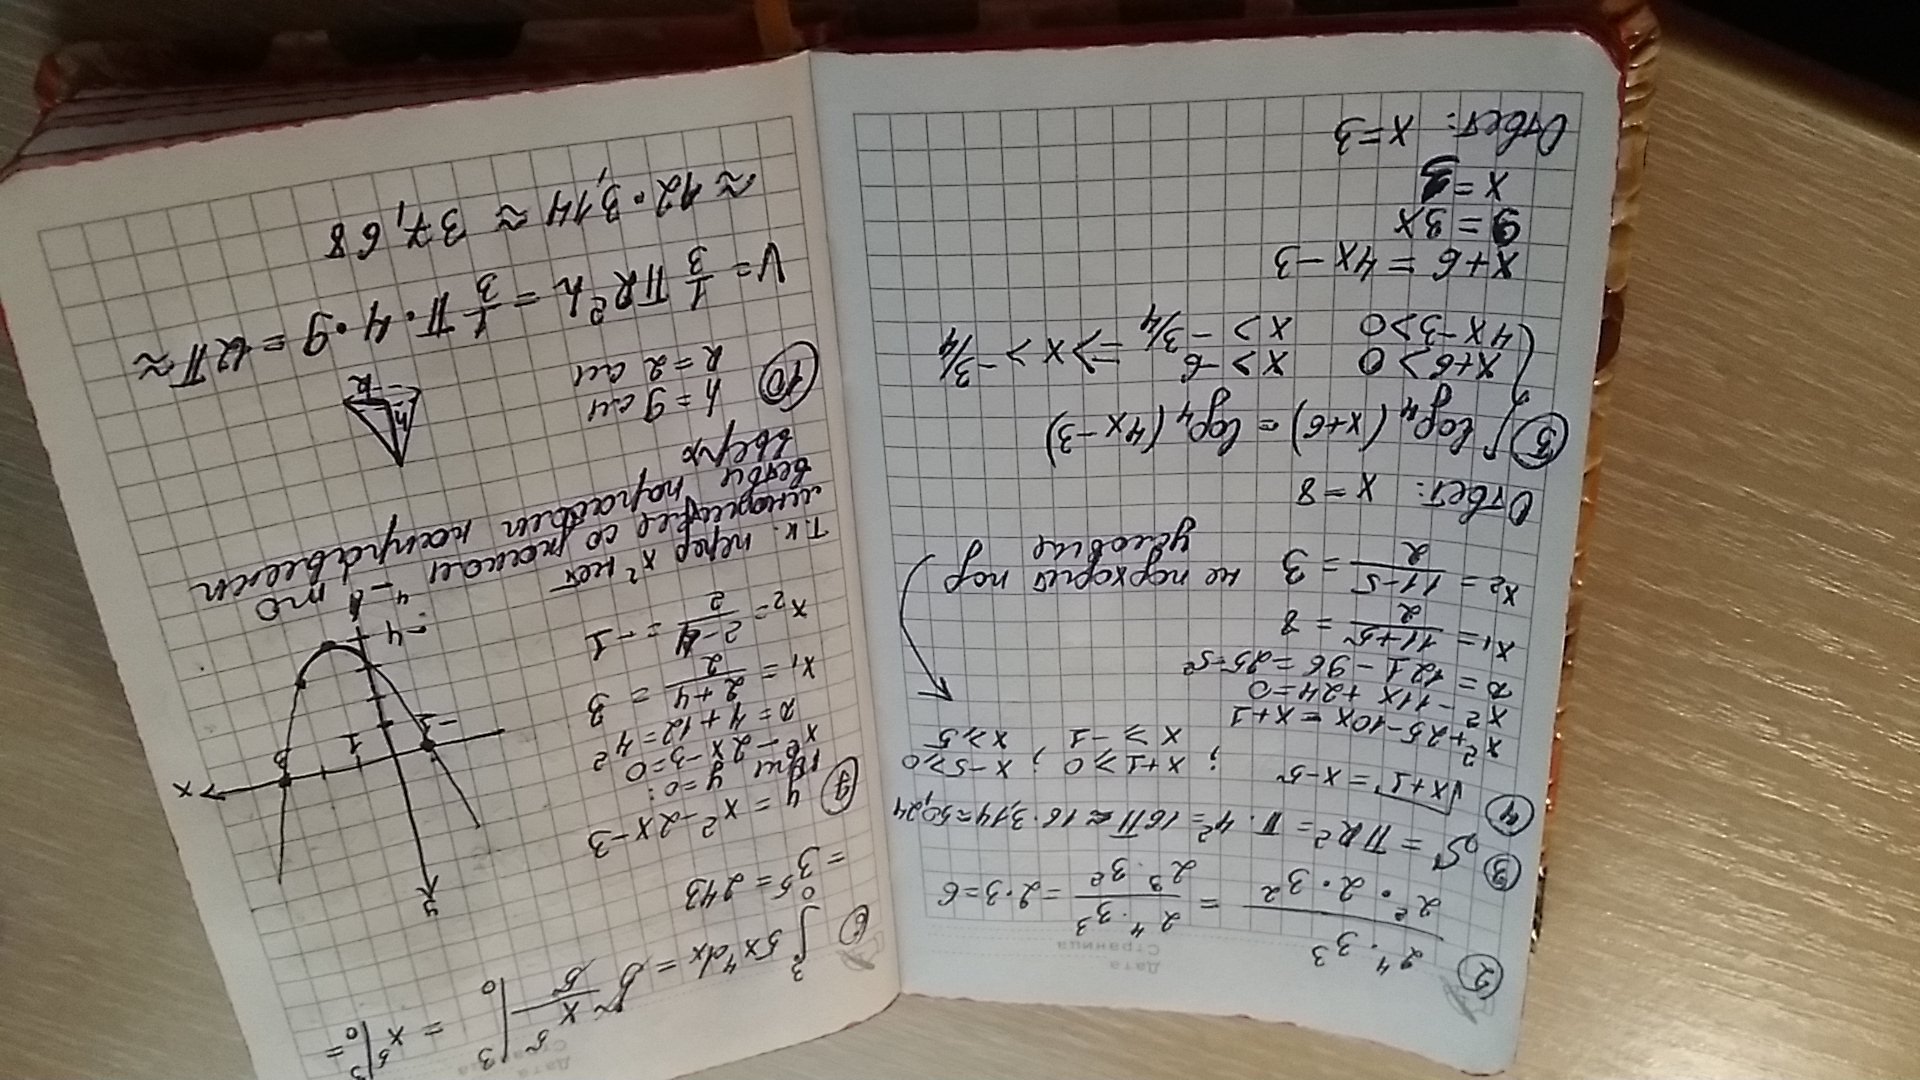 Дата
Страница
② 2⁴·3³ / 2²·2·3² = 2⁴·3³ / 2³·3² = 2·3=6
③ S₀ = πR² = π·4² = 16π ≈ 16·3,14≈50,24
④ √x+1 = x-5 ; x+1≥0 ; x-5≥0
x≥-1 x≥5
x²+25-10x = x+1
x²-11x+24=0
D = 121-96=25=5²
x₁ = 11+5 / 2 = 8
x₂ = 11-5 / 2 = 3 не подходит под
условие
Ответ: x=8
⑤ log₄(x+6) = log₄(4x-3)
x+6>0 x>-6 => x>-3/4
4x-3>0 x>-3/4
x+6=4x-3
9=3x
x=3
Ответ: x=3
Дата
Страница
⑥ ∫₀³ 5x⁴dx = 5 x⁵/5 |₀³ = x⁵|₀³ =
= 3⁵ = 243
⑨ y = x²-2x-3
при y=0:
x²-2x-3=0
D=4+12=4²
x₁ = 2+4 / 2 = 3
x₂ = 2-4 / 2 = -1
y
x
3
1
-1
-4
-4
т.к. перед x² нет
множителе со знаком -, то
ветви парабол направлены
вверх
⑩ h=9см
R=2см
h
R
V= 1/3 πR²h = 1/3 π·4·9 = 12π≈
≈12·3,14 ≈ 37,68